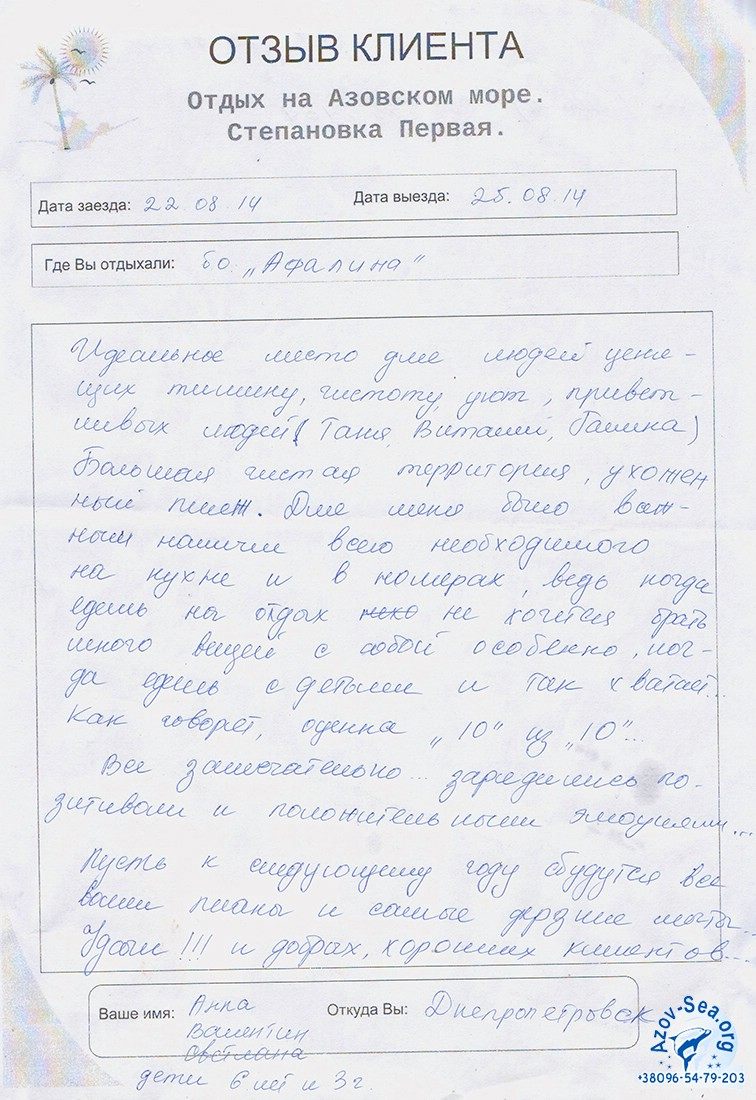 ОТЗЫВ КЛИЕНТА
Отдых на Азовском море.
Степановка Первая.
Дата заезда: 22.08.14 Дата выезда: 25.08.14
Где Вы отдыхали: бо „Афалина“
Идеальное место для людей ценя-
щих тишину, чистоту, уют, привет-
ливых людей (Таня, Виталий, Галинка)
Большая чистая территория, ухожен
ный пляж. Для меня было важ-
ным наличии всего необходимого
на кухне и в номерах, ведь когда
едешь на отдых не хочется брать
много вещей с собой особенно, ког-
да едешь с детьми и так хватает...
Как говорят, оценка „10“ из „10“...
Все замечательно... зарядились по-
зитивом и положительными эмоциями...
Пусть к следующему году сбудутся все
ваши планы и самые дерзкие мечты...
Удачи!!! и добрых, хороших клиентов...
Ваше имя: Анна Откуда Вы: Днепропетровск
Валентин
Светлана
дети 6 лет и 3 г.
Azov-Sea.org
+38096-54-79-203